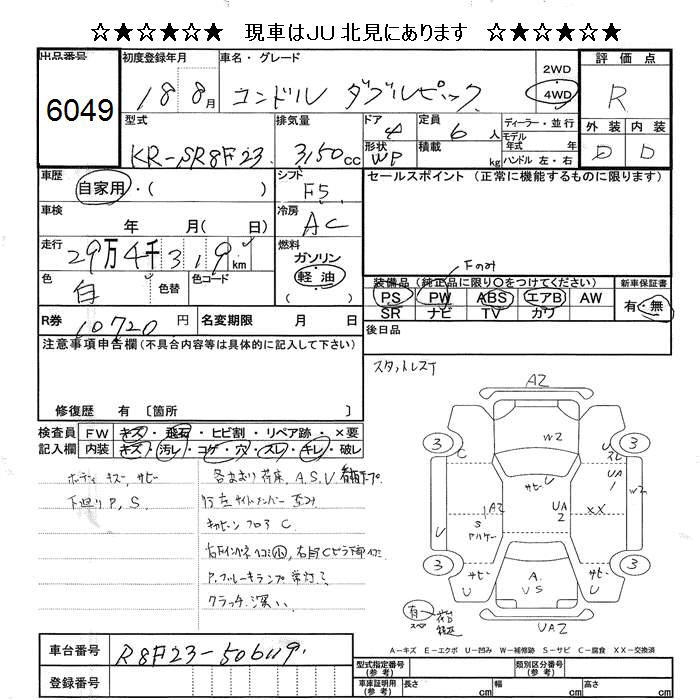 ☆★☆★☆★☆ 現車はJU北見にあります ☆★☆★☆★☆
出品番号 初度登録年月 車名・グレード 2WD 4WD 評価点
6049 18 8月 コンドル ダブルピック R
型式 排気量 ドア 定員 ディーラー・並行 外装 内装
KR-SR8F23 3,150cc 4 6人 モデル年式 年 D D
形状 WP 積載 kg ハンドル 左・右
車歴 シフト セールスポイント (正常に機能するものに限ります)
自家用・( ) F5
車検 冷房
年 月( 日) AC
走行 燃料
29万4千319km ガソリン
軽油 Fのみ
色 色替 色コード 装備品 (純正品に限り○をつけてください) 新車保証書
白 PS PW ABS エアB AW 有・無
SR ナビ TV カワ
R券 10720円 名変期限 月 日 後日品
注意事項申告欄(不具合内容等は具体的に記入して下さい)
スタットレスT
修復歴 有 〔箇所 〕
検査員 FW キズ・飛石・ヒビ割・リペア跡・×要
記入欄 内装 キズ・汚レ・コゲ・穴・スレ・キレ・破レ
ボディ キズ・サビー
下廻り P,S
各まわり 荷床、A.S.V
左サイドメンバー 歪み
キャビーン フロア C
右Fインパネ ヘコミ小、右
P.ブレーキランプ常灯
クラッチ深い
AZ
3 C W2 3 スレ
UA1
サビー U W2
AZ UA2 XX
S
U
3 サビー U A. VS サビー U 3
有
UA2
A-キズ E-エクボ U-凹み W-補修跡 S-サビ C-腐食 XX-交換済
車台番号 R8F23-506119
登録番号
型式指定番号(参考) 類別区分番号(参考)
車庫証明用(参考) 長さ cm 幅 cm 高さ cm